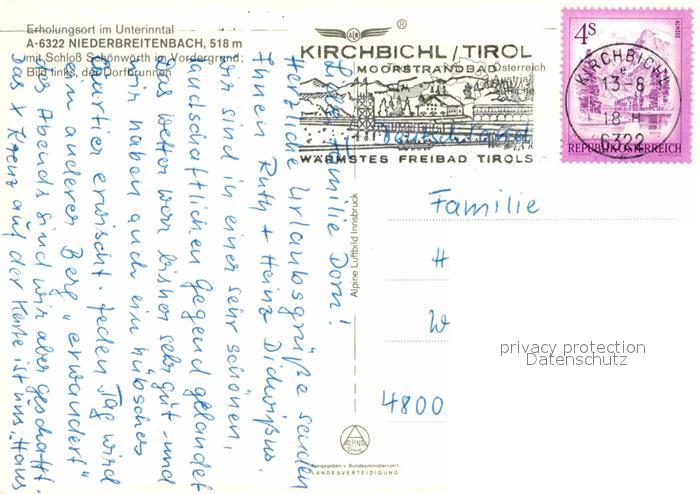 Erholungsort im Unterinntal
A-6322 NIEDERBREITENBACH, 518 m
mit Schloß Schönwörth im Vordergrund;
Bild links, der Dorfbrunnen
Österreich
Austria
KIRCHBICHL/TIROL
MOORSTRANDBAD
WÄRMSTES FREIBAD TIROLS
®
4 S
ALMSEE
REPUBLIK ÖSTERREICH
KIRCHBICHL
13.-8
18 H
6322
Liebe Familie Dorn!
Herzliche Urlaubsgrüße senden
Ihnen Ruth + Heinz
Wir sind in einer sehr schönen,
landschaftlichen Gegend gelandet
Das Wetter war bisher sehr gut und
wir haben auch ein hübsches
Quartier erwischt. Jeden Tag wird
ein anderer Berg "erwandert"
des Abends sind wir aber geschafft.
Das X Kreuz auf der Karte ist uns. Haus
Deutschland
Familie
H
W
4800
privacy protection
Datenschutz
Alpine Luftbild Innsbruck
ALPINE
Freigegeben v. Bundesministerium f.
LANDESVERTEIDIGUNG